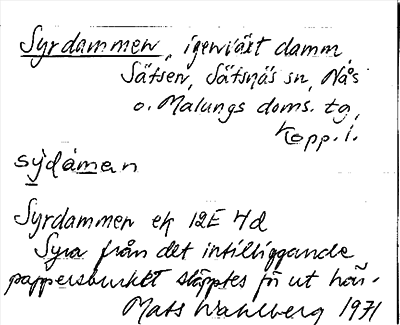 Syrdammen, igenväxt damm,
Sätsen, Sätsnäs sn, Nås
o. Malungs doms. tg,
Kopp. l.
sỳdàmen
Syrdammen ek 12E 4d
Syra från det intilliggande
pappersbruket släpptes fö ut här.
Mats Wahlberg 1971